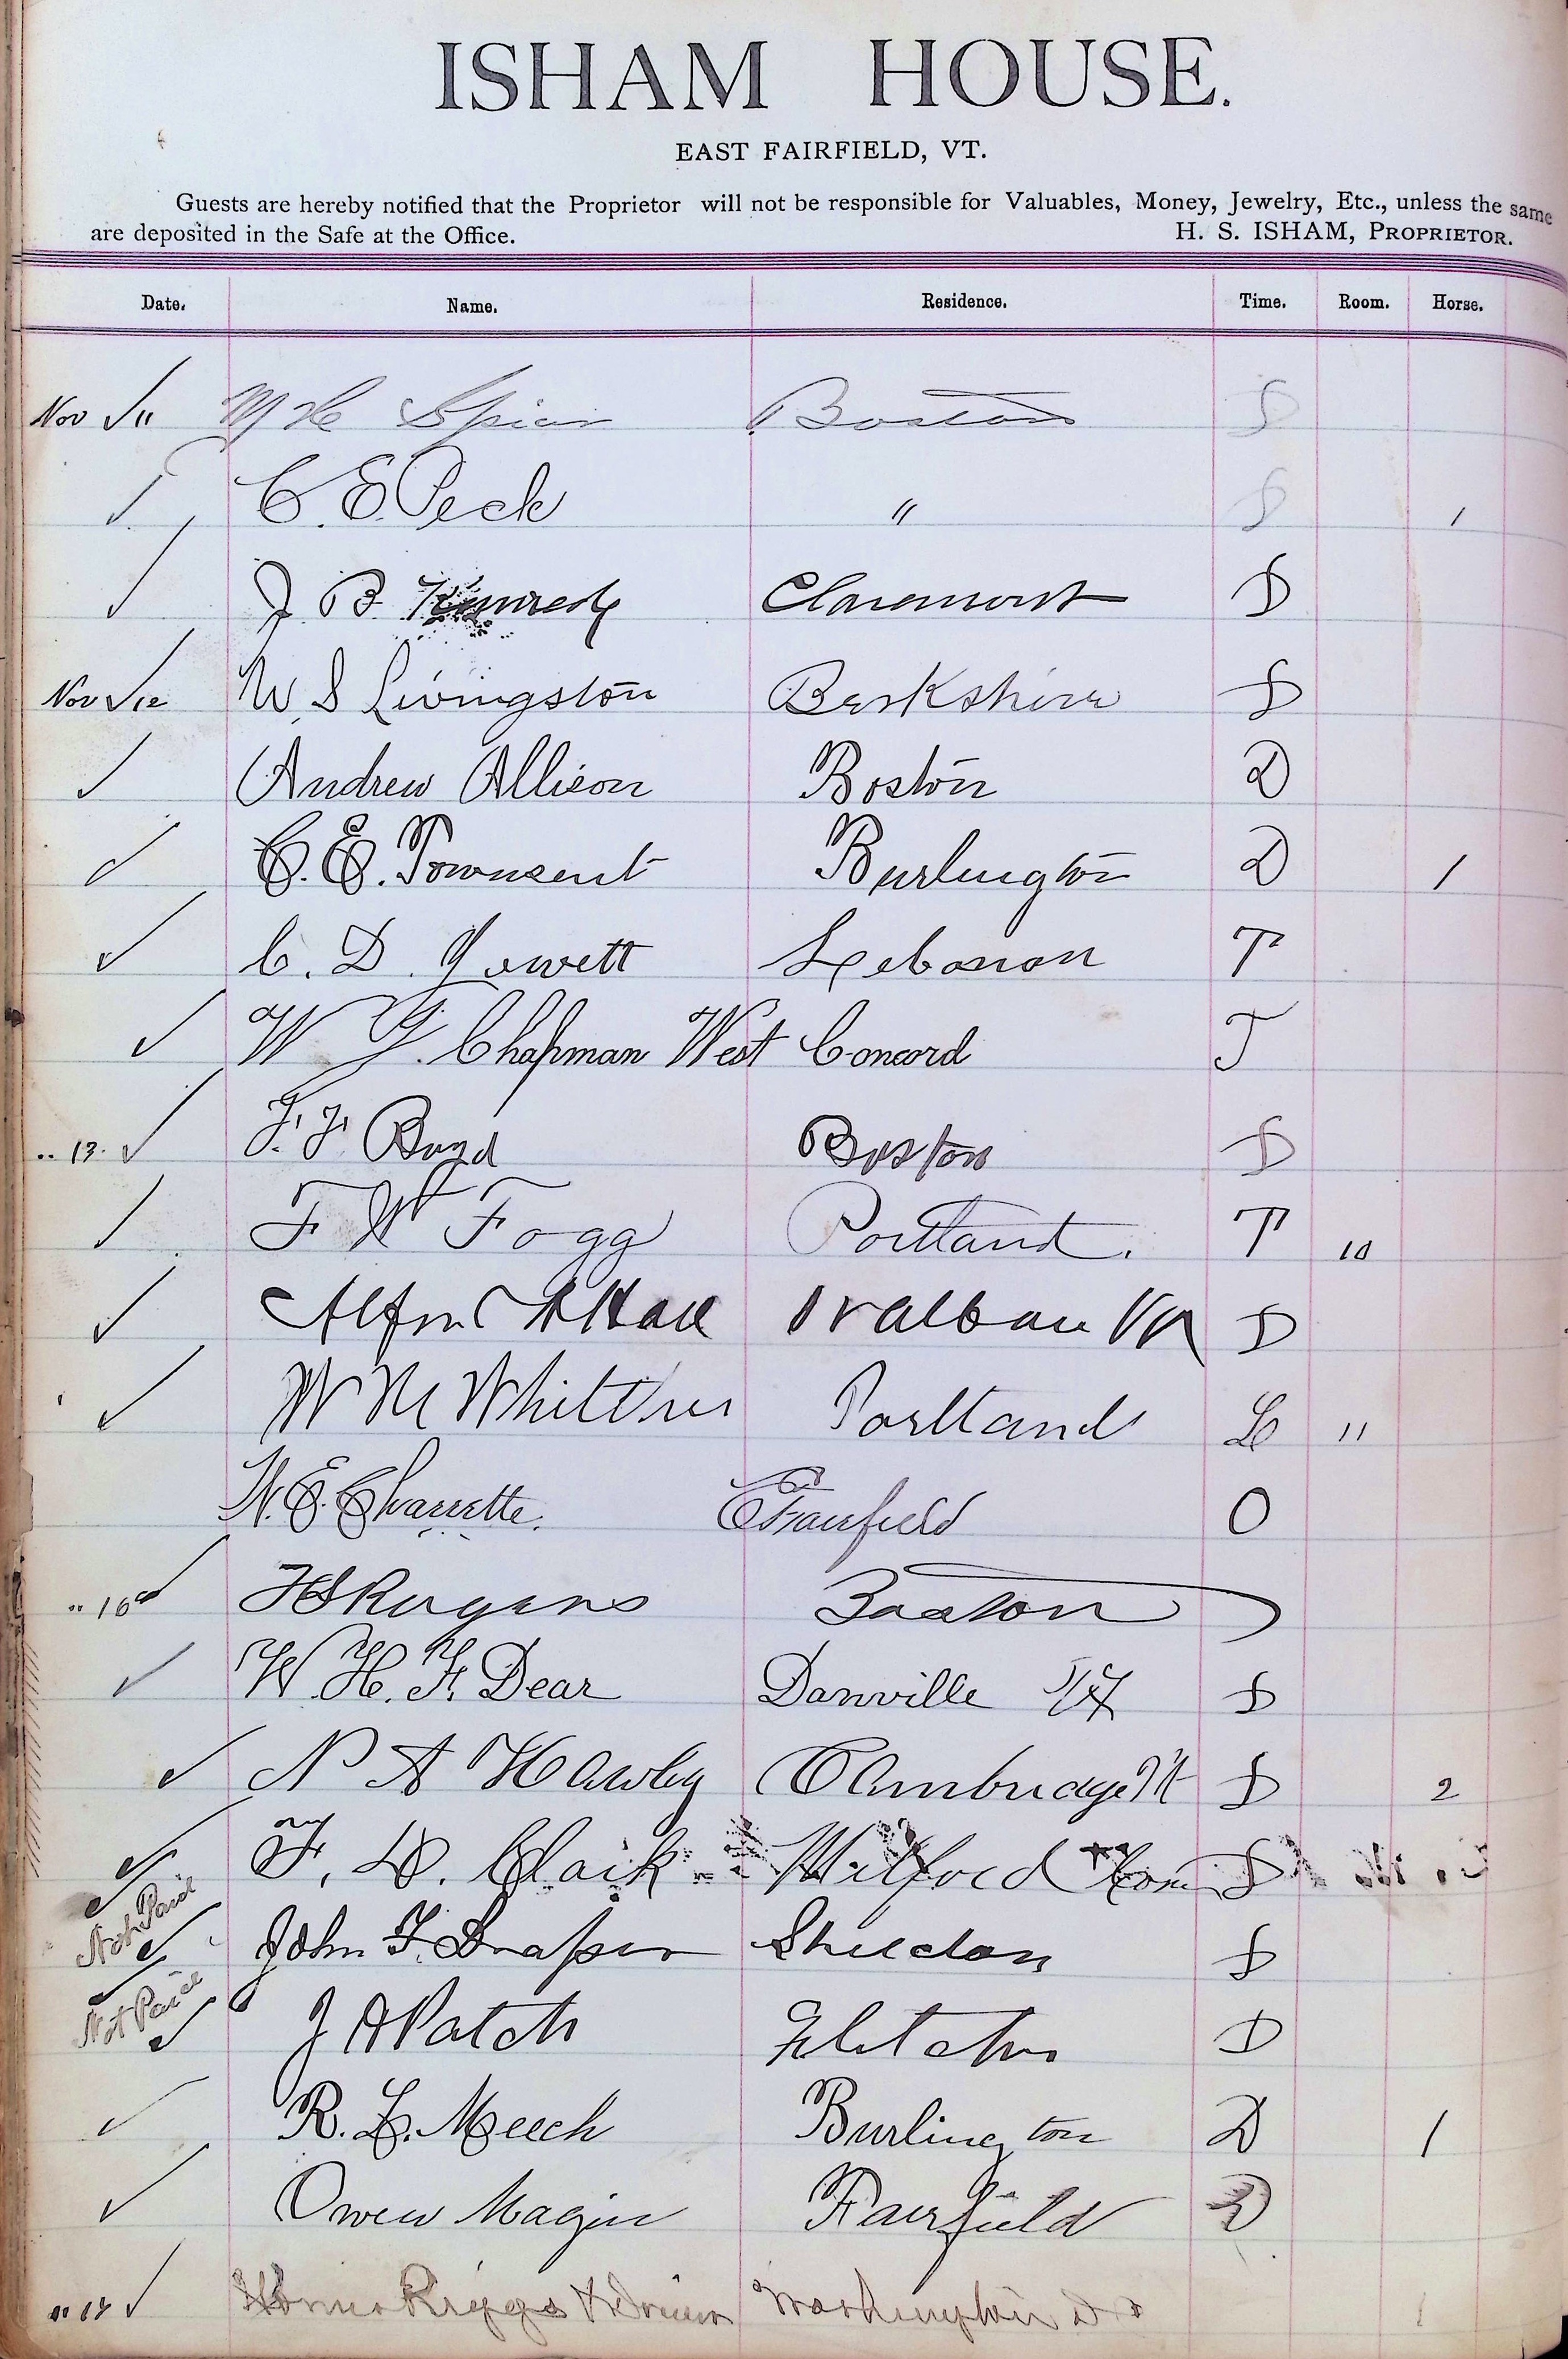 ISHAM HOUSE.
EAST FAIRFIELD, VT.
Guests are hereby notified that the Proprietor will not be responsible for Valuables, Money, Jewelry, Etc., unless the same
are deposited in the Safe at the Office. H. S. ISHAM, PROPRIETOR.
Date. Name. Residence. Time. Room. Horse.
Nov ✓ 11 Boston S
✓ C. E. Peck " S 1
✓ J. B. Kennedy Claremont D
Nov ✓ 12 W. S Livingston Berkshire S
✓ Andrew Allison Boston D
✓ C. E. Townsent Burlington D 1
✓ C. D. Jowett Lebanon T
✓ W G. Chapman West Concord T
" 13. ✓ F. F. Boyd Boston D
✓ F W Fogg Portland. T 10
✓ Hall St Alban D
✓ W M Portland L 11
W. E. Charrette. E Fairfield O
" 16 ✓ H S Rogers Boston
✓ W. H. F. Dear Danville Vt S
✓ N A Hawley Cambridge Vt D 2
✓ F. D. Clark Milford Con D
Not Paid ✓ John F. Draper Sheldon S
Not Paid ✓ J A Patch Fletcher D
✓ R. L. Meech Burlington D 1
✓ Owen Magin Fairfield D
" 17 ✓ Riggs Washington D 1